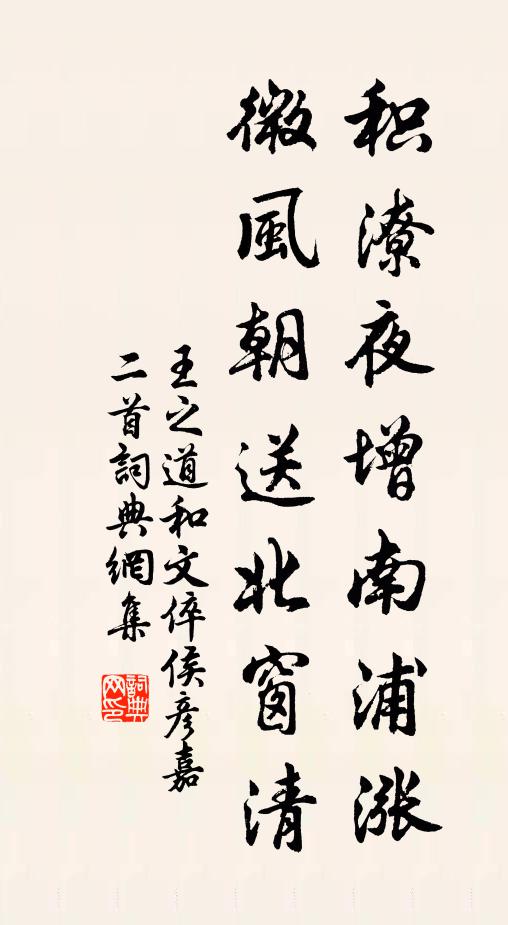 积潦夜增南浦涨
微風朝送北窗清
王之道和文倅侯彦嘉
二首詞典網集
詞典網印